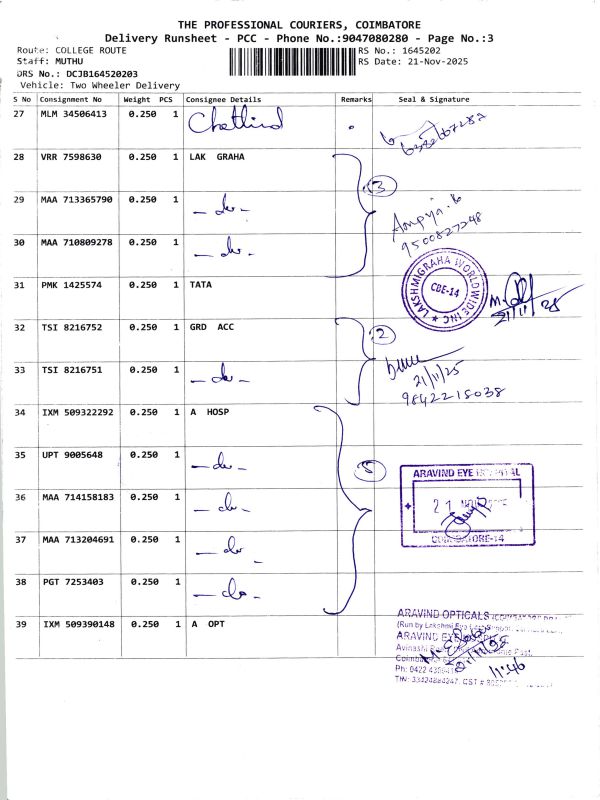 THE PROFESSIONAL COURIERS, COIMBATORE
Delivery Runsheet - PCC - Phone No.:9047080280 - Page No.:3
Route: COLLEGE ROUTE
RS No.: 1645202
Staff: MUTHU
RS Date: 21-Nov-2025
DRS No.: DCJB164520203
Vehicle: Two Wheeler Delivery
S No Consignment No Weight PCS Consignee Details Remarks Seal & Signature
27 MLM 34506413 0.250 1
28 VRR 7598630 0.250 1 LAK GRAHA
3
29 MAA 713365790 0.250 1 - do -
9500827248
30 MAA 710809278 0.250 1 - do -
LAKSHMIGRAHA WORLDWIDE INC
CBE-14
31 PMK 1425574 0.250 1 TATA
21/11/25
32 TSI 8216752 0.250 1 GRD ACC
2
33 TSI 8216751 0.250 1 - do -
21/11/25
9842215038
34 IXM 509322292 0.250 1 A HOSP
35 UPT 9005648 0.250 1 - do -
5
ARAVIND EYE HOSPITAL
36 MAA 714158183 0.250 1 - do -
21 NOV
37 MAA 713204691 0.250 1 - do -
COIMBATORE-14
38 PGT 7253403 0.250 1 - do -
39 IXM 509390148 0.250 1 A OPT
ARAVIND OPTICALS
(Run by Lakshmi Eye
ARAVIND EYE
Avinashi
11:46
Ph: 0422
TIN: 33424884247, CST #